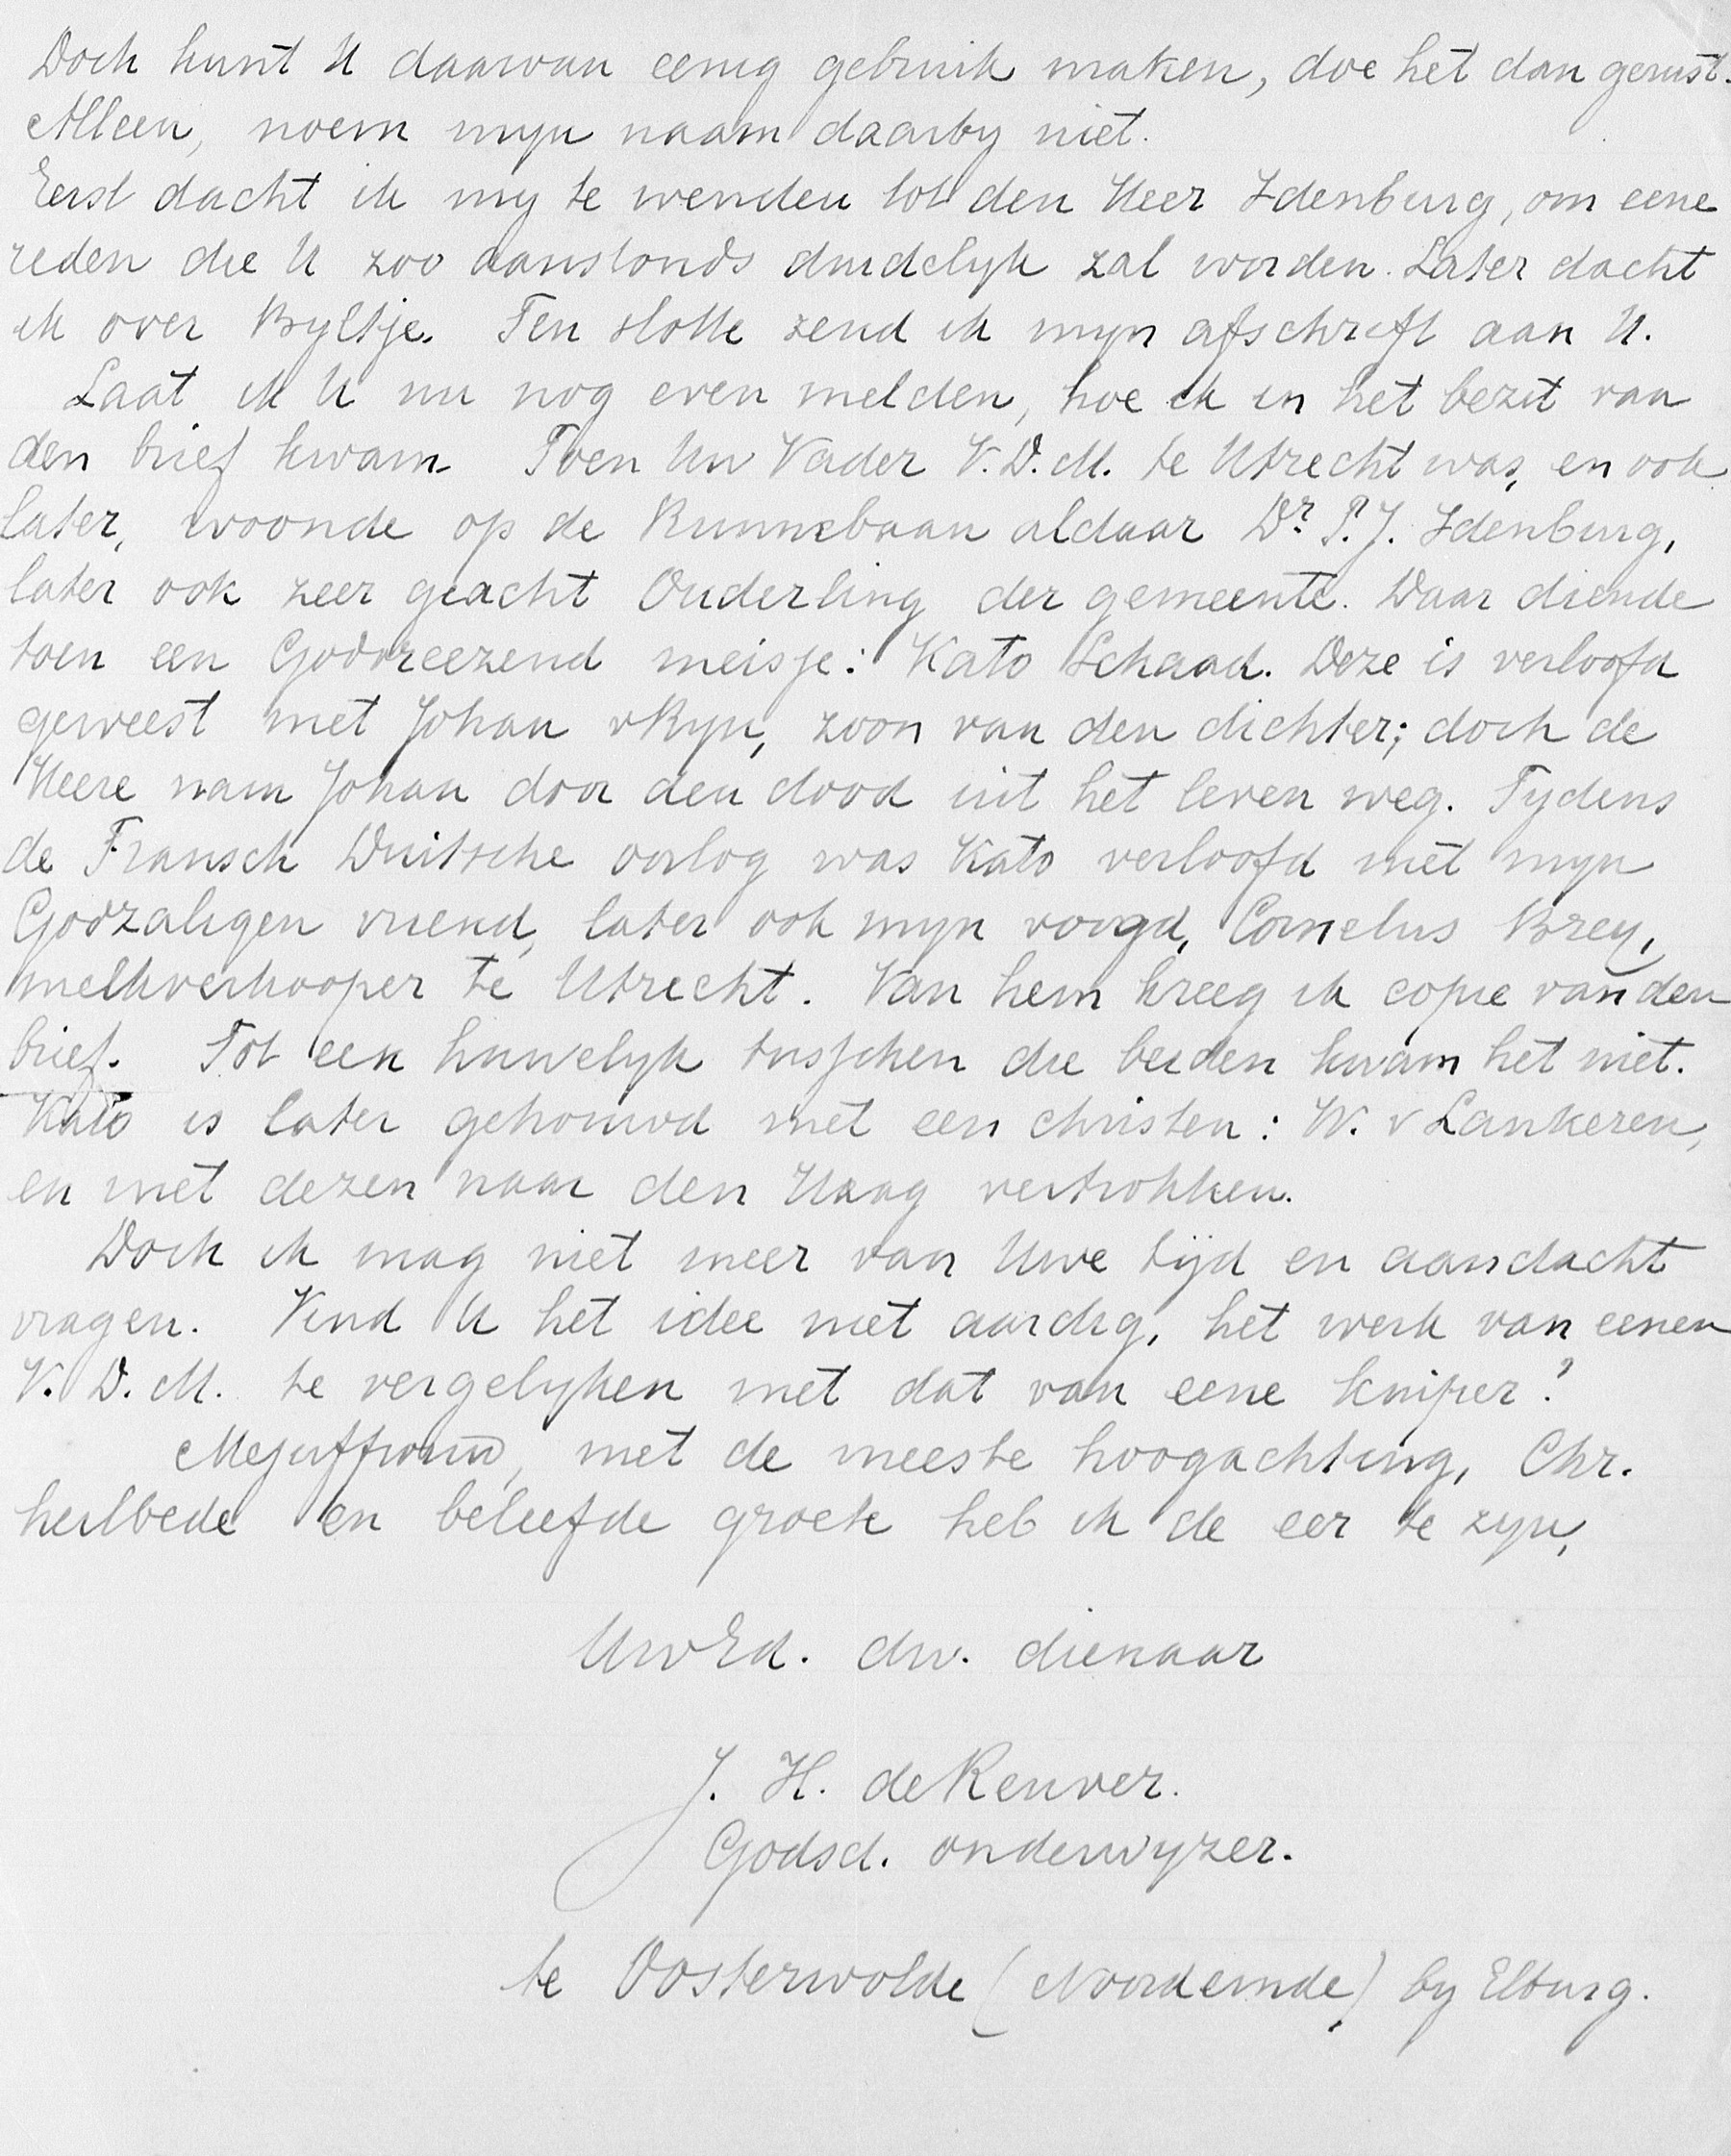 Doch kunt U daarvan eenig gebruik maken, doe het dan gerust.
Alleen, noem myn naam daarby niet.
Eerst dacht ik my te wenden tot den Heer Idenburg, om eene
reden die U zoo aanstonds duidelyk zal worden. Later dacht
ik over Byltje. Ten slotte zend ik myn afschrift aan U.
Laat ik U nu nog even melden, hoe ik in het bezit van
den brief kwam. Toen Uw Vader V.D.M. te Utrecht was, en ook
later, woonde op de Runnebaan aldaar Dr. P.J. Idenburg,
later ook zeer geacht Ouderling der gemeente. Daar diende
toen een Godvreezend meisje: Kato Schaad. Deze is verloofd
geweest met Johan v Ryn, zoon van den dichter; doch de
Heere nam Johan door den dood uit het leven weg. Tydens
de Fransch Duitsche oorlog was Kato verloofd met myn
Godzaligen vriend, later ook myn voogd, Cornelus Brey,
melkverkooper te Utrecht. Van hem kreeg ik copie van den
brief. Tot een huwelyk tusschen die beiden kwam het niet.
Kato is later gehouwd met een christen: W. v Lankeren,
en met dezen naar den Haag vertrokken.
Doch ik mag niet meer van Uwe tijd en aandacht
vragen. Vind U het idee niet aardig, het werk van eenen
V.D.M. te vergelyken met dat van eene kuiper?
Mejuffrouw, met de meeste hoogachting, Chr.
heilbede en beleefde groete heb ik de eer te zyn,
UwEd. dw. dienaar
J. H. de Renver.
Godsd. onderwyzer.
te Oosterwolde (Noordeinde) by Elburg.